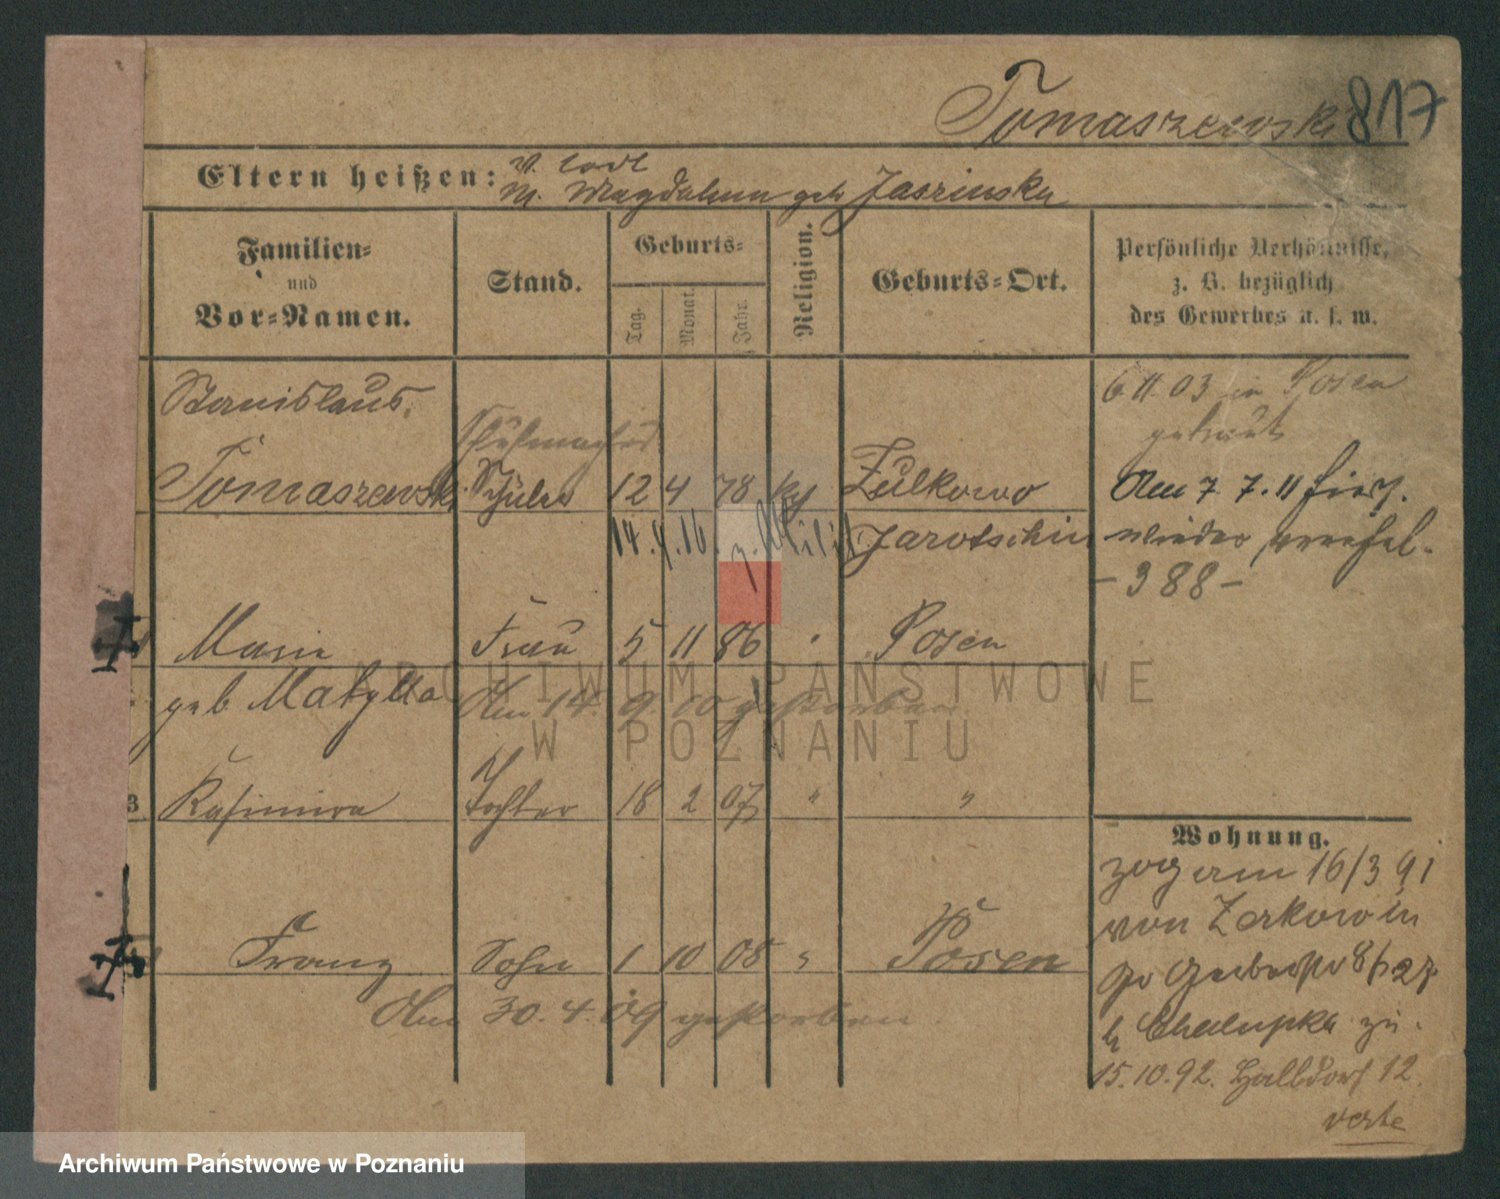 Tomaszewski 817
Eltern heißen: V. todt
M. Magdalena geb Jaszinska
Familien-
und
Vor-Namen.
Stand.
Geburts-
Tag.
Monat.
Jahr.
Religion.
Geburts-Ort.
Persönliche Verhältnisse,
z. B. bezüglich
des Gewerbes u. s. w.
Stanislaus
Tomaszewski Schüler 12 4 78 Zulkowo
14.4.16. z. Militär Jarotschin
6 11 03 in Posen
getraut
Am 7 7. 11 hier
wieder
- 388 -
Marie Frau 5 11 86 Posen
geb Matylla Am 14. 9. 10 gestorben
3 Kasimira Tochter 18 2 07 " "
Franz Sohn 1 10 08 " Posen
Am 30. 4. 09 gestorben
Wohnung.
zog am 16/3 91
von Zerkow in
b Chalupka zu.
15. 10. 92. Halbdorf 12.
verte
ARCHIWUM PAŃSTWOWE
W POZNANIU
Archiwum Państwowe w Poznaniu